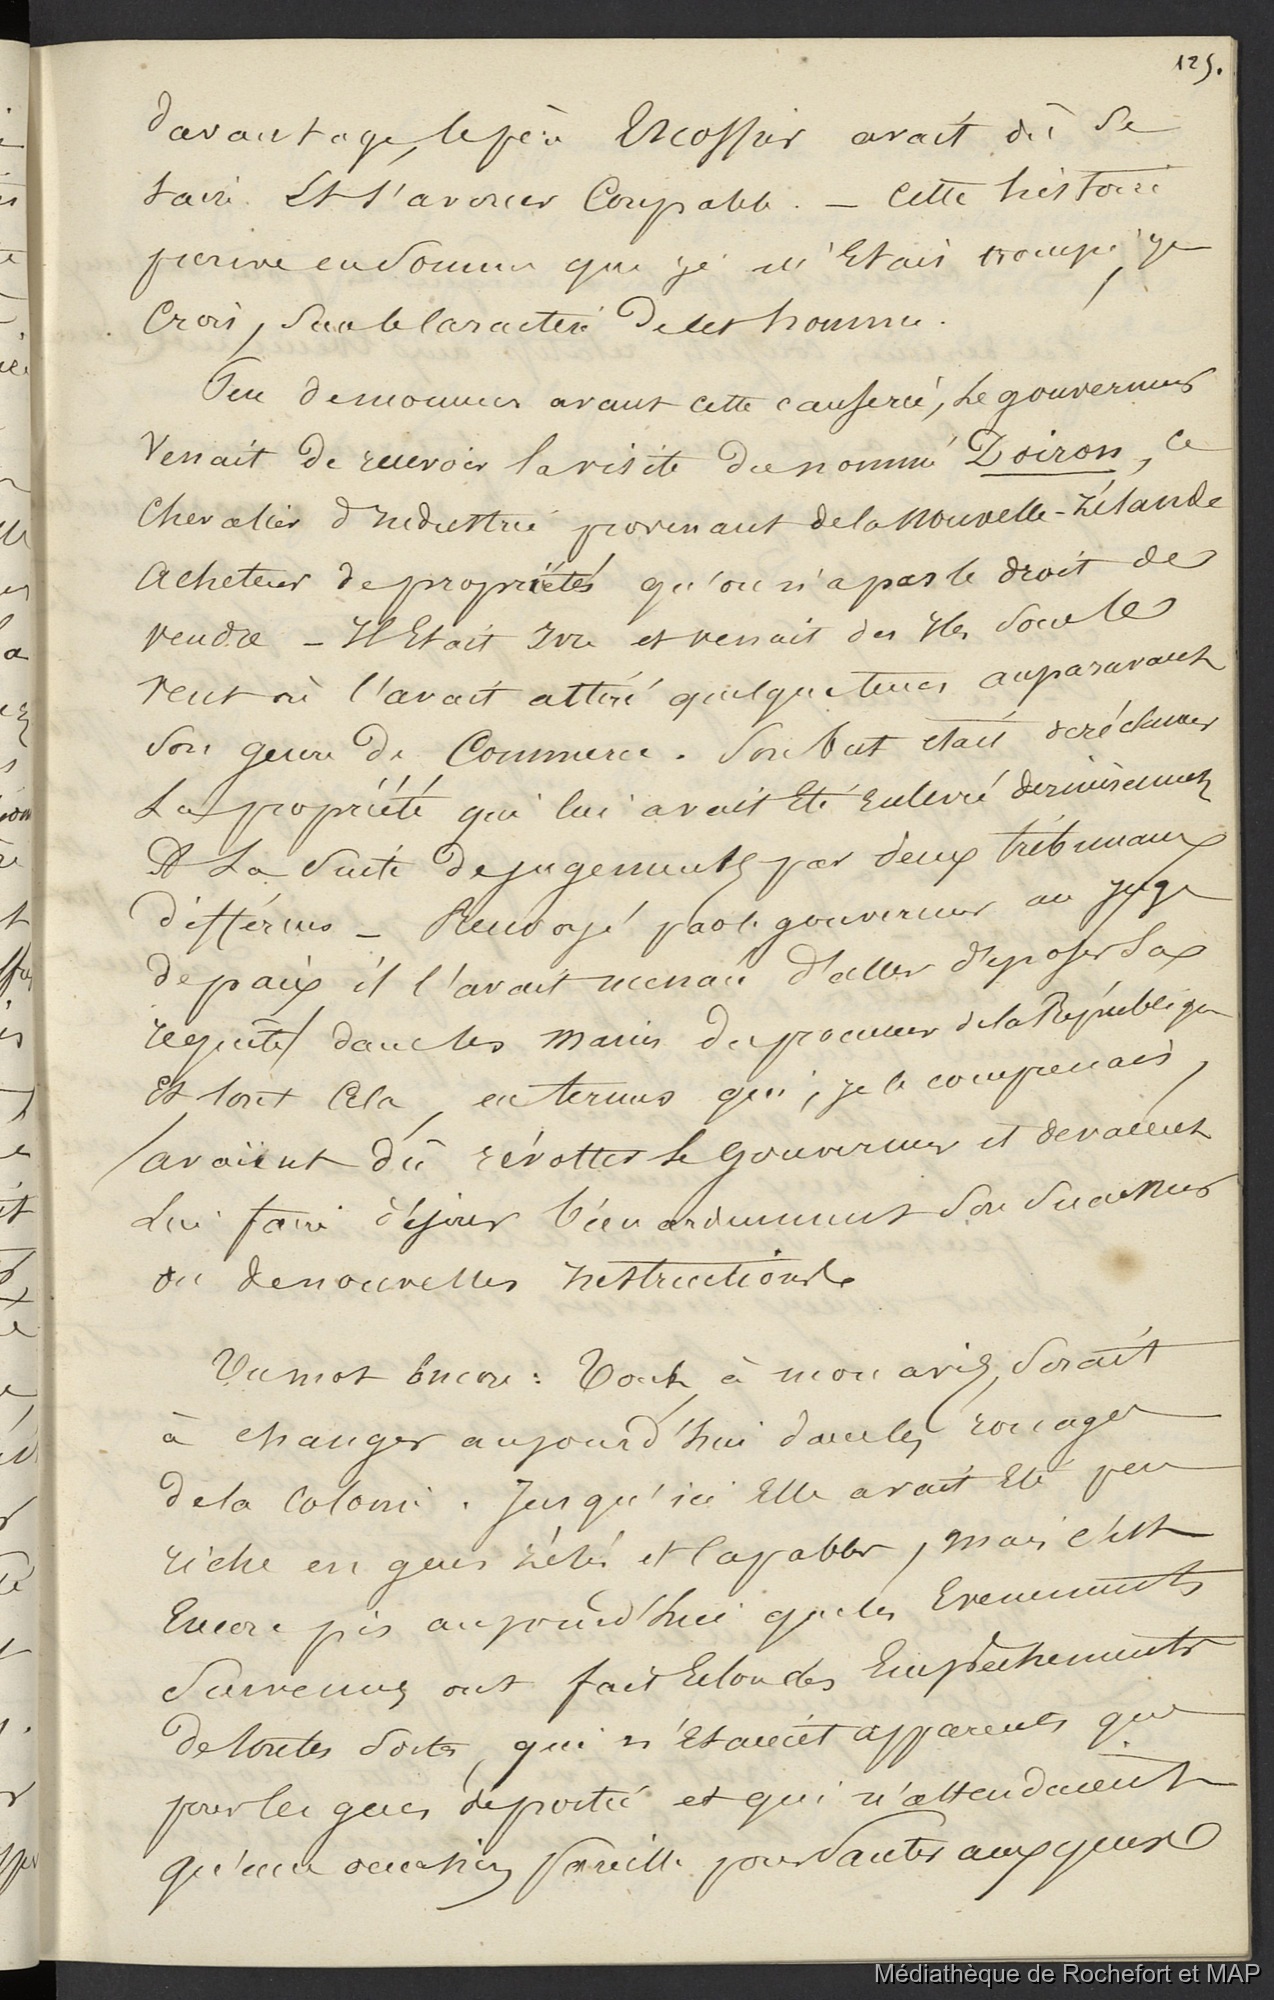 125.
davantage, le père Escoffier avait dû se
taire Et s'avouer Coupable. — Cette histoire
prouve en somme que je m'Etais trompé, je
Crois, sur le caractère de cet homme.
Peu de moments avant cette causerie, Le gouverneur
Venait de recevoir la visite du nommé Doiron, ce
Chevalier d'Industrie provenant de la Nouvelle-Zélande
Acheteur de propriétés qu'on n'a pas le droit de
vendre — Il Etait Ivre et venait des Iles sous le
Vent où l'avait attiré quelque temps auparavant
Son genre de Commerce. Son but était de réclamer
La propriété qui lui avait Eté Enlevée dernièrement
A La Suite de jugements par deux tribunaux
différens — Renvoyé par le gouverneur au juge
de paix il l'avait menacé d'aller déposer Sa
requête dans les mains du procureur de la République
Et tout Cela, en termes qui, je le comprenais,
avaient dû révolter Le Gouverneur et devaient
Lui faire désirer bien ardemment Son Successeur
ou de nouvelles Instructions.
Un mot Encore : Tout, à mon avis, Serait
à changer aujourd'hui dans les rouages
de la Colonie. Jusqu'ici Elle avait Eté peu
riche en gens zélés et Capables, mais c'est
Encore pis aujourd'hui que les Evenements
Survenus ont fait Eclore des Empêchements
de toutes Sortes, qui n'Etaient apparents que
pour les gens déportés et qui n'attendaient
qu'une occasion pareille pour Sauter aux yeux
Médiathèque de Rochefort et MAP